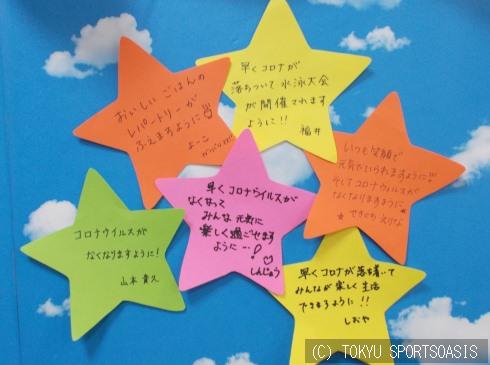 おいしいごはんの
レパートリーが
ふえますように!!!
よーこ
早くコロナが
落ちついて 水泳大会
が開催されます
ように!!
福井
いつも笑顔で
元気でいられますように!!
そしてコロナウイルスが
なくなりますように
コロナウイルスが
なくなりますように!
山本 貴久
早くコロナウイルスが
なくなって
みんな元気に
楽しく過ごせます
ように…!
しんじゅう
早くコロナが落ち着いて
みんなが楽しく生活
できますように!!
しおや
(C) TOKYU SPORTSOASIS